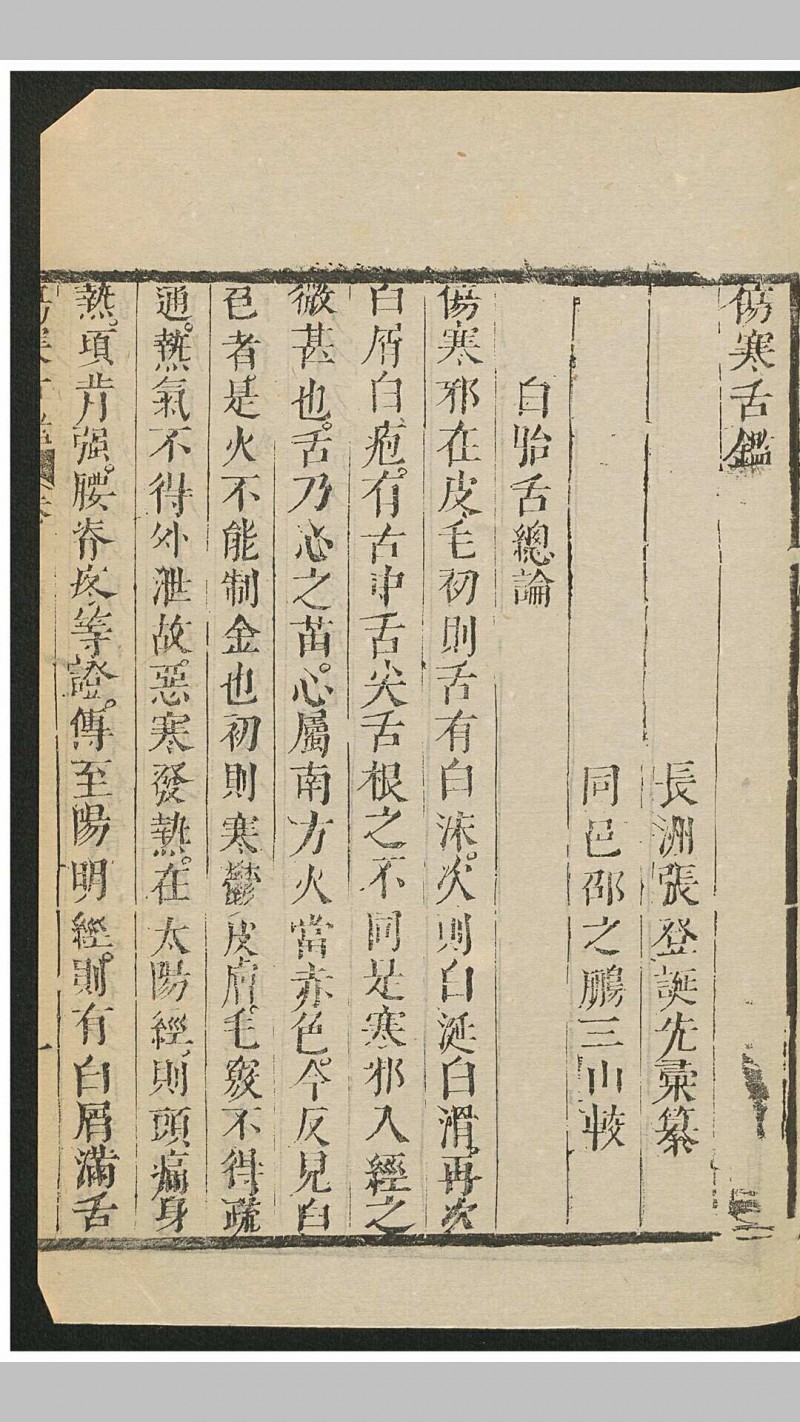 傷寒舌鑑
長洲張登誕先彚纂
同邑邵之鵬三山較
白胎舌總論
傷寒邪在皮毛初則舌有白沫。次則白涎白滑。再次
白屑白疱。有舌中舌尖舌根之不同是寒邪入經之
微甚也。舌乃心之苗。心屬南方火當赤色。今反見白
色者。是火不能制金也初則寒鬱皮膚。毛竅不得疏
通。熱氣不得外泄故。惡寒發熱。在太陽經。則頭痛身
熱。項背强。腰脊疼等證。傳至陽明經。則有白屑滿舌
一